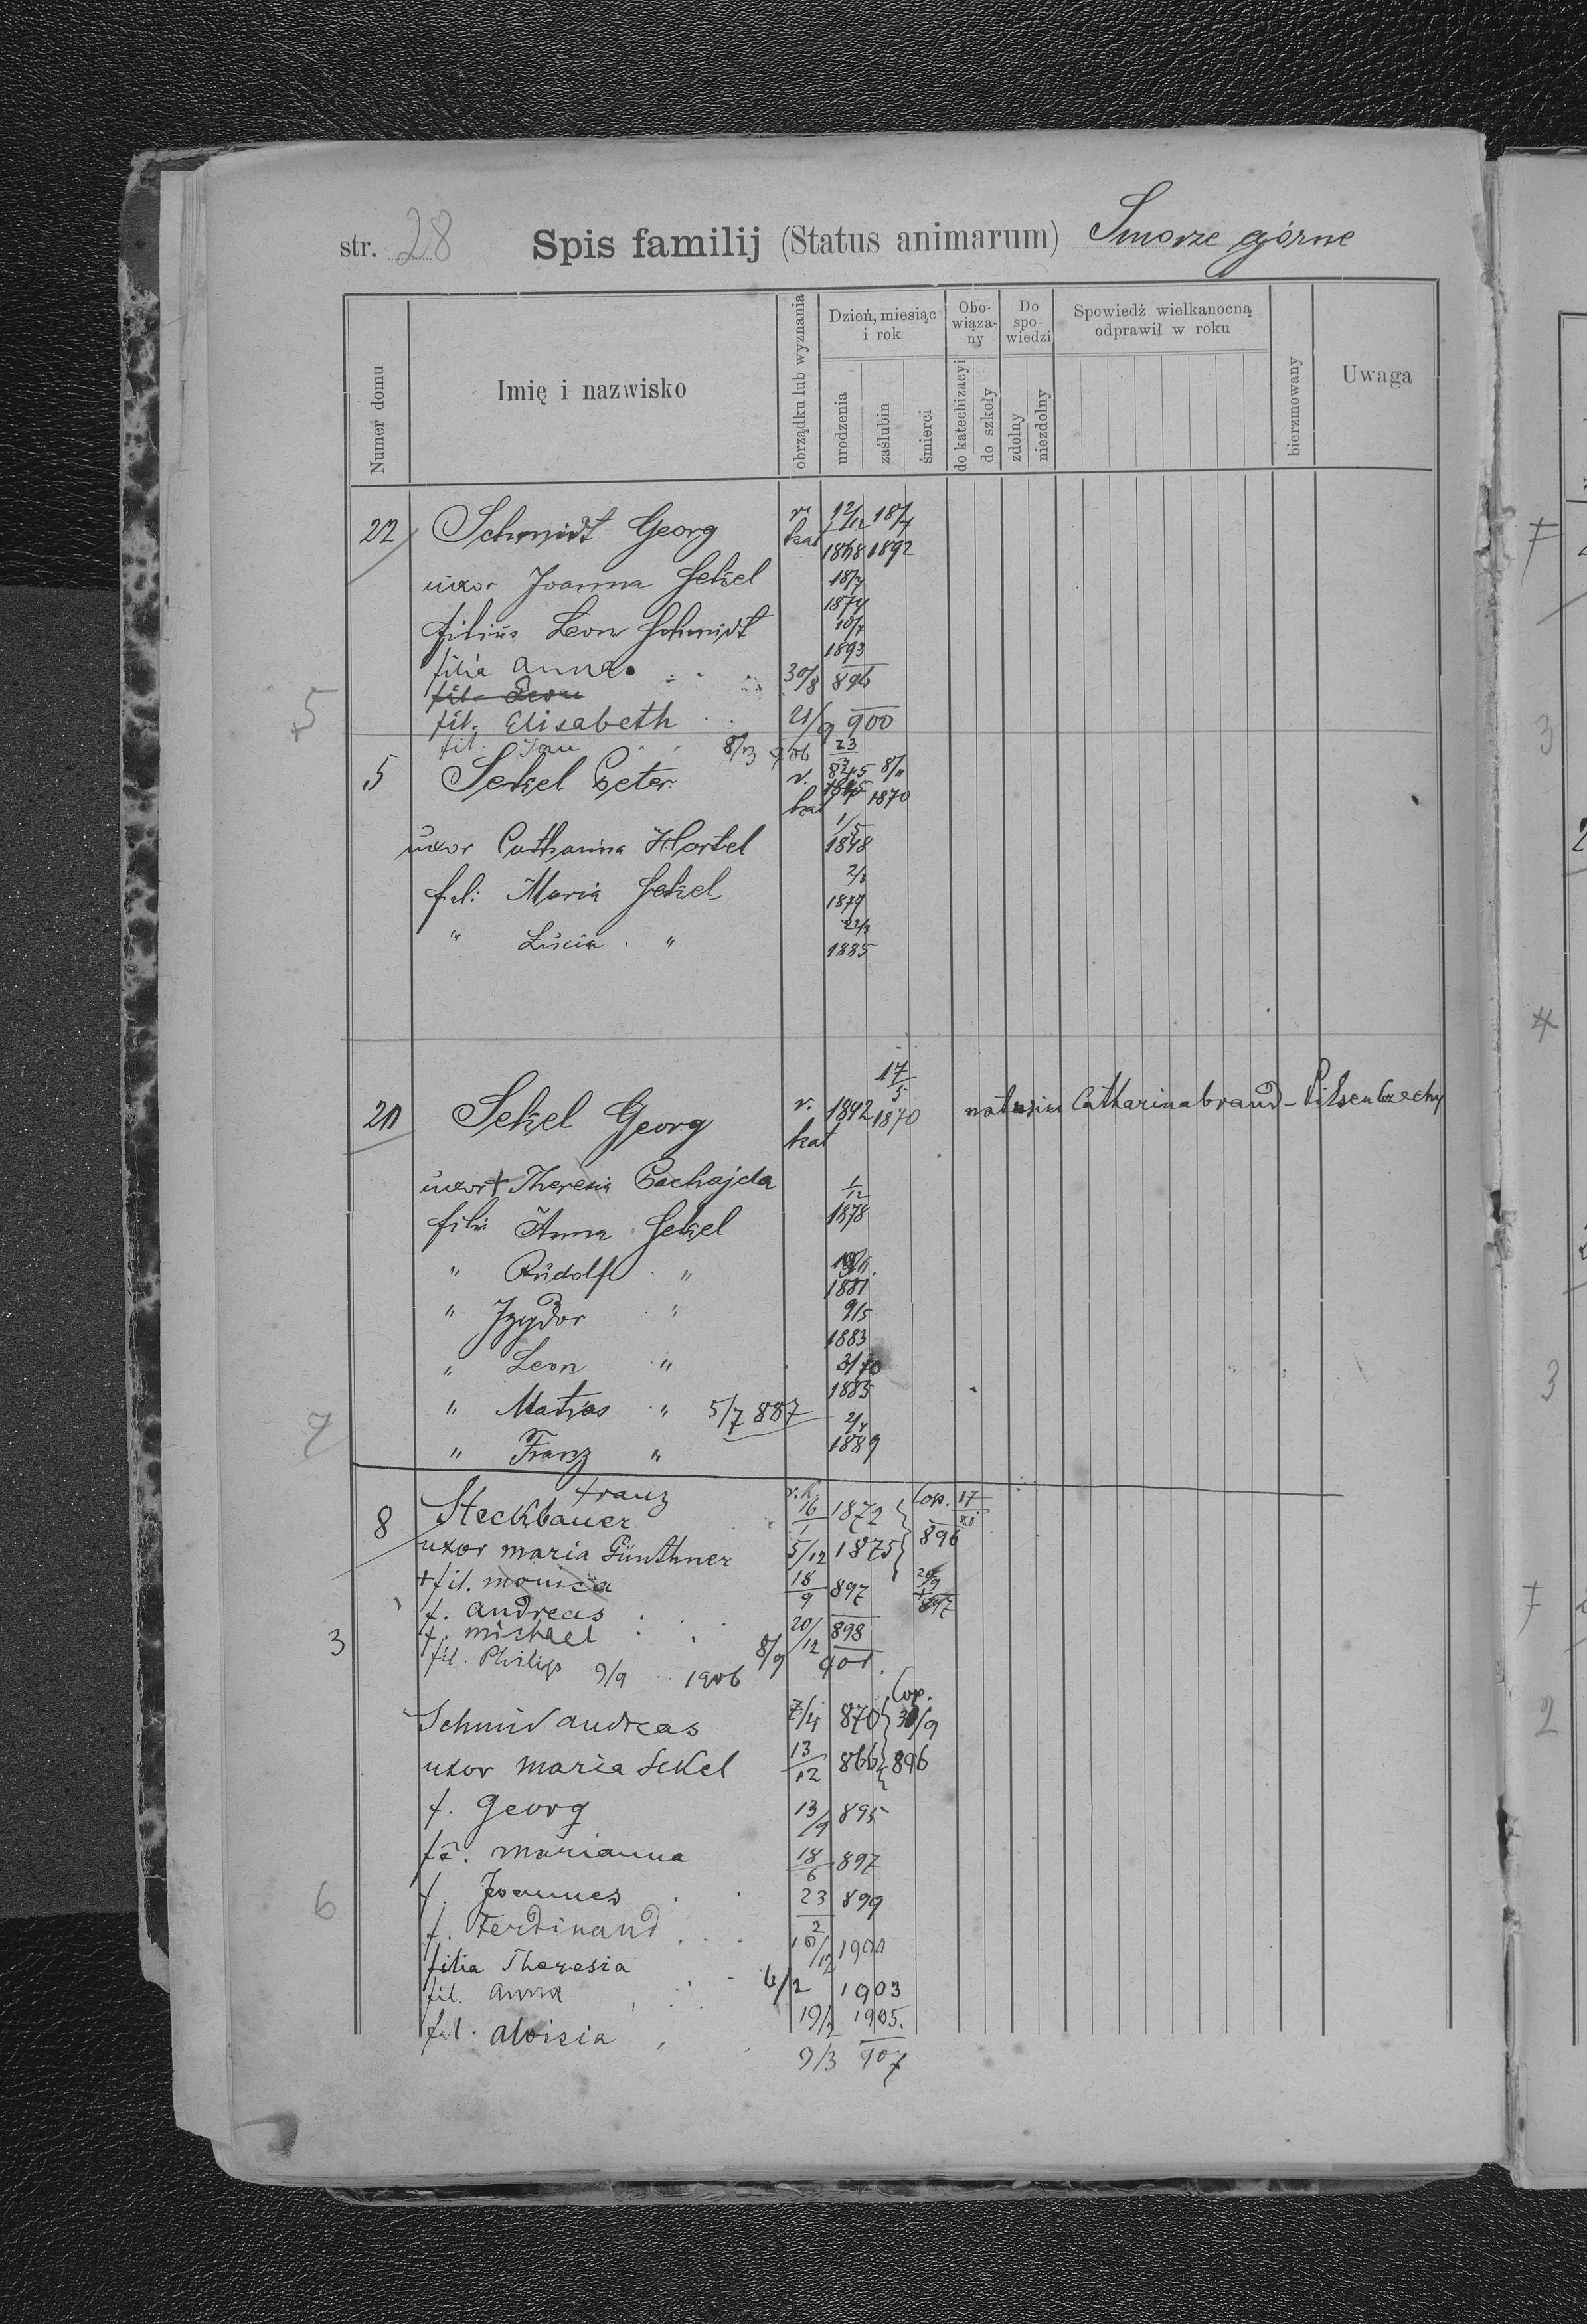 str. 28 Spis familij (Status animarum) Smorze górne
Numer domu
Imię i nazwisko
obrządku lub wyznania
Dzień, miesiąc i rok
urodzenia
zaślubin
śmierci
Obo-wiąza-ny
do katechizacyi
do szkoły
Do spo-wiedzi
zdolny
niezdolny
Spowiedź wielkanocną odprawił w roku
bierzmowany
Uwaga
22 Schmidt Georg r. kat 12/12 1868 18/7 1892
uxor Joanna Sekel 18/7 1874
filius Leon Schmidt 10/7 1893
filia Anna 30/8 896
fil. Leon
5 fil. Elisabeth 21/9 900
fil. Jan 8/3 906
5 Sekel Peter r. kat 1845 8/11 1870
uxor Catharina Hortel 1/5 1848
fil: Maria Sekel 2/3 1879
" Lucia " 1885
21 Sekel Georg r. kat 1842 17/5 1870 Catharina brand - Pilsen Czechy
uxor + Theresia Pachajda
fili: Anna Sekel 1/12 1878
" Rudolf " 1881
" Izydor " 9/5 1883
" Leon " 31/10 1885
" Matias " 5/7 887
7 " Franz " 2/7 1889
8 Steckbauer Franz r.k. 16/1 1872 Cop. 17 896
uxor maria Günthner 5/12 1875
+ fil. monica 18/9 897 29/9 + 897
f. andreas 20/12 898
3 f. michael 8/9 901.
fil. Philip 9/9 1906
Schmid andreas 7/4 870 Cop. 30/9
uxor maria Sekel 13/12 866 896
f. Georg 13/9 895
fa. marianna 18/6 897
6 f. Joannes 23/2 899
f. Ferdinand 10/12 1900
filia Theresia 6/2 1903
fil. anna 19/2 1905.
fil. aloisia 9/3 907